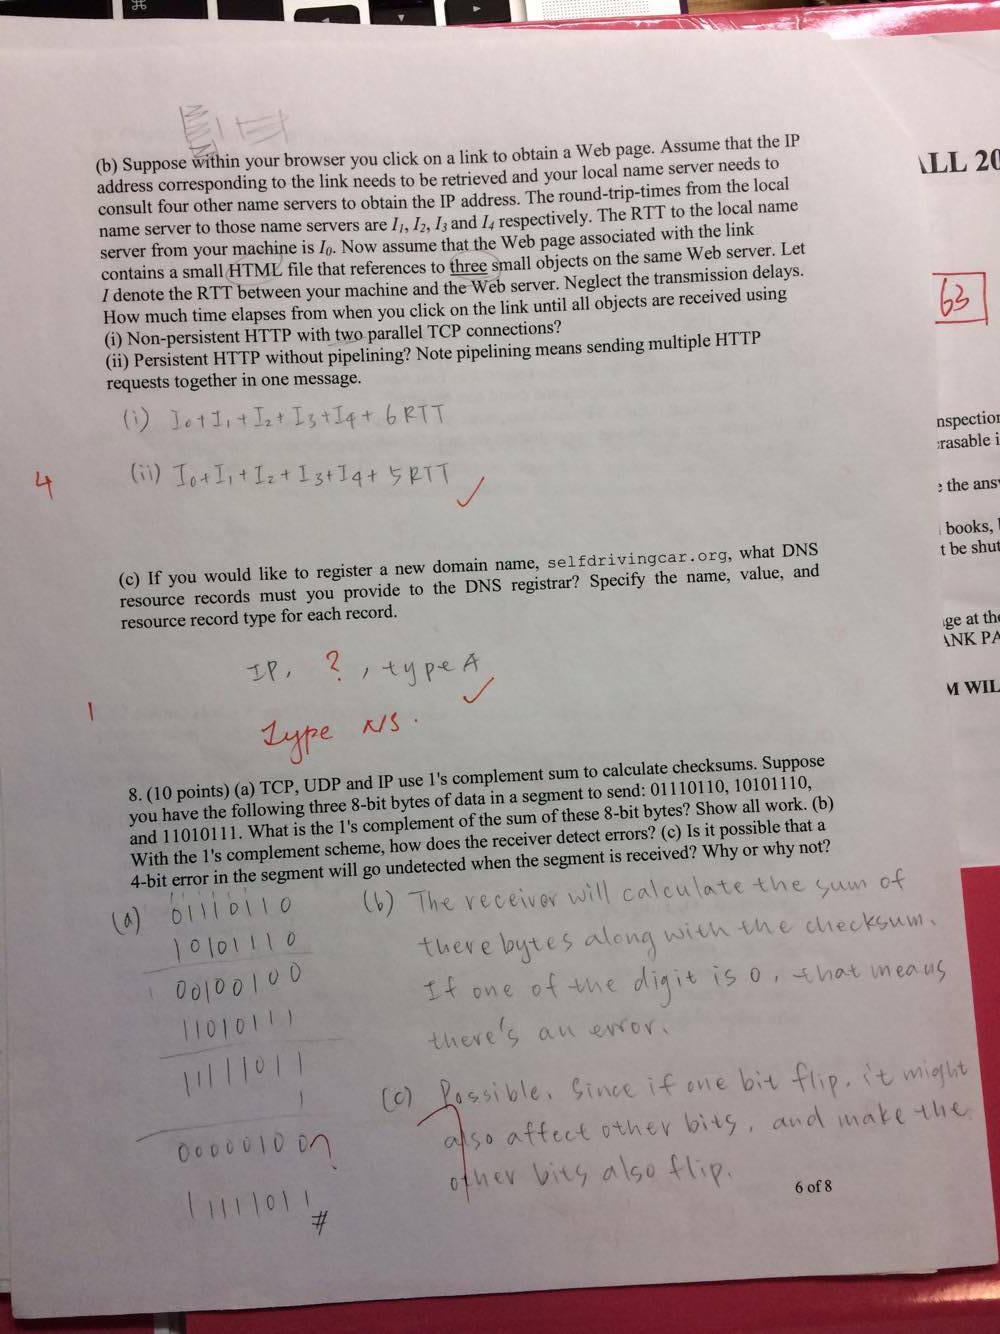 (b) Suppose within your browser you click on a link to obtain a Web page. Assume that the IP
address corresponding to the link needs to be retrieved and your local name server needs to
consult four other name servers to obtain the IP address. The round-trip-times from the local
name server to those name servers are I1, I2, I3 and I4 respectively. The RTT to the local name
server from your machine is I0. Now assume that the Web page associated with the link
contains a small HTML file that references to three small objects on the same Web server. Let
I denote the RTT between your machine and the Web server. Neglect the transmission delays.
How much time elapses from when you click on the link until all objects are received using
(i) Non-persistent HTTP with two parallel TCP connections?
(ii) Persistent HTTP without pipelining? Note pipelining means sending multiple HTTP
requests together in one message.
(i) I0+I1+I2+I3+I4+6RTT
4
(ii) I0+I1+I2+I3+I4+5RTT
(c) If you would like to register a new domain name, selfdrivingcar.org, what DNS
resource records must you provide to the DNS registrar? Specify the name, value, and
resource record type for each record.
IP, ? , type A
1
Type NS.
8. (10 points) (a) TCP, UDP and IP use 1's complement sum to calculate checksums. Suppose
you have the following three 8-bit bytes of data in a segment to send: 01110110, 10101110,
and 11010111. What is the 1's complement of the sum of these 8-bit bytes? Show all work. (b)
With the 1's complement scheme, how does the receiver detect errors? (c) Is it possible that a
4-bit error in the segment will go undetected when the segment is received? Why or why not?
(a) 01110110
10101110
00100100
11010111
11111011
1
00000100
11111011 #
(b) The receiver will calculate the sum of
there bytes along with the checksum.
If one of the digit is 0, that means
there's an error.
(c) Possible. Since if one bit flip, it might
also affect other bits, and make the
other bits also flip.
6 of 8
ALL 20
63
nspection
erasable i
e the ansv
books,
t be shut
ge at the
ANK PA
M WIL